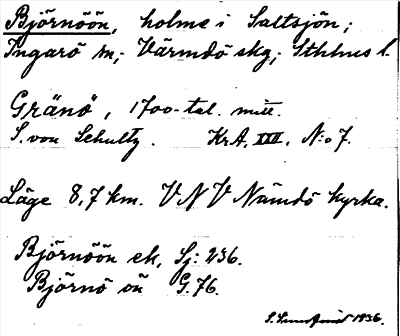 Björnöön, holme i Saltsjön;
Ingarö sn; Värmdö skg; Sthlms l.
Gränö, 1700-tal. mitt.
S. von Schultz. Kr.A. XXII, N:o 7.
Läge 8,7 km. VNV Nämdö kyrka.
Björnöön ek, Sj: 236.
Björnö ön G. 76.
1936.